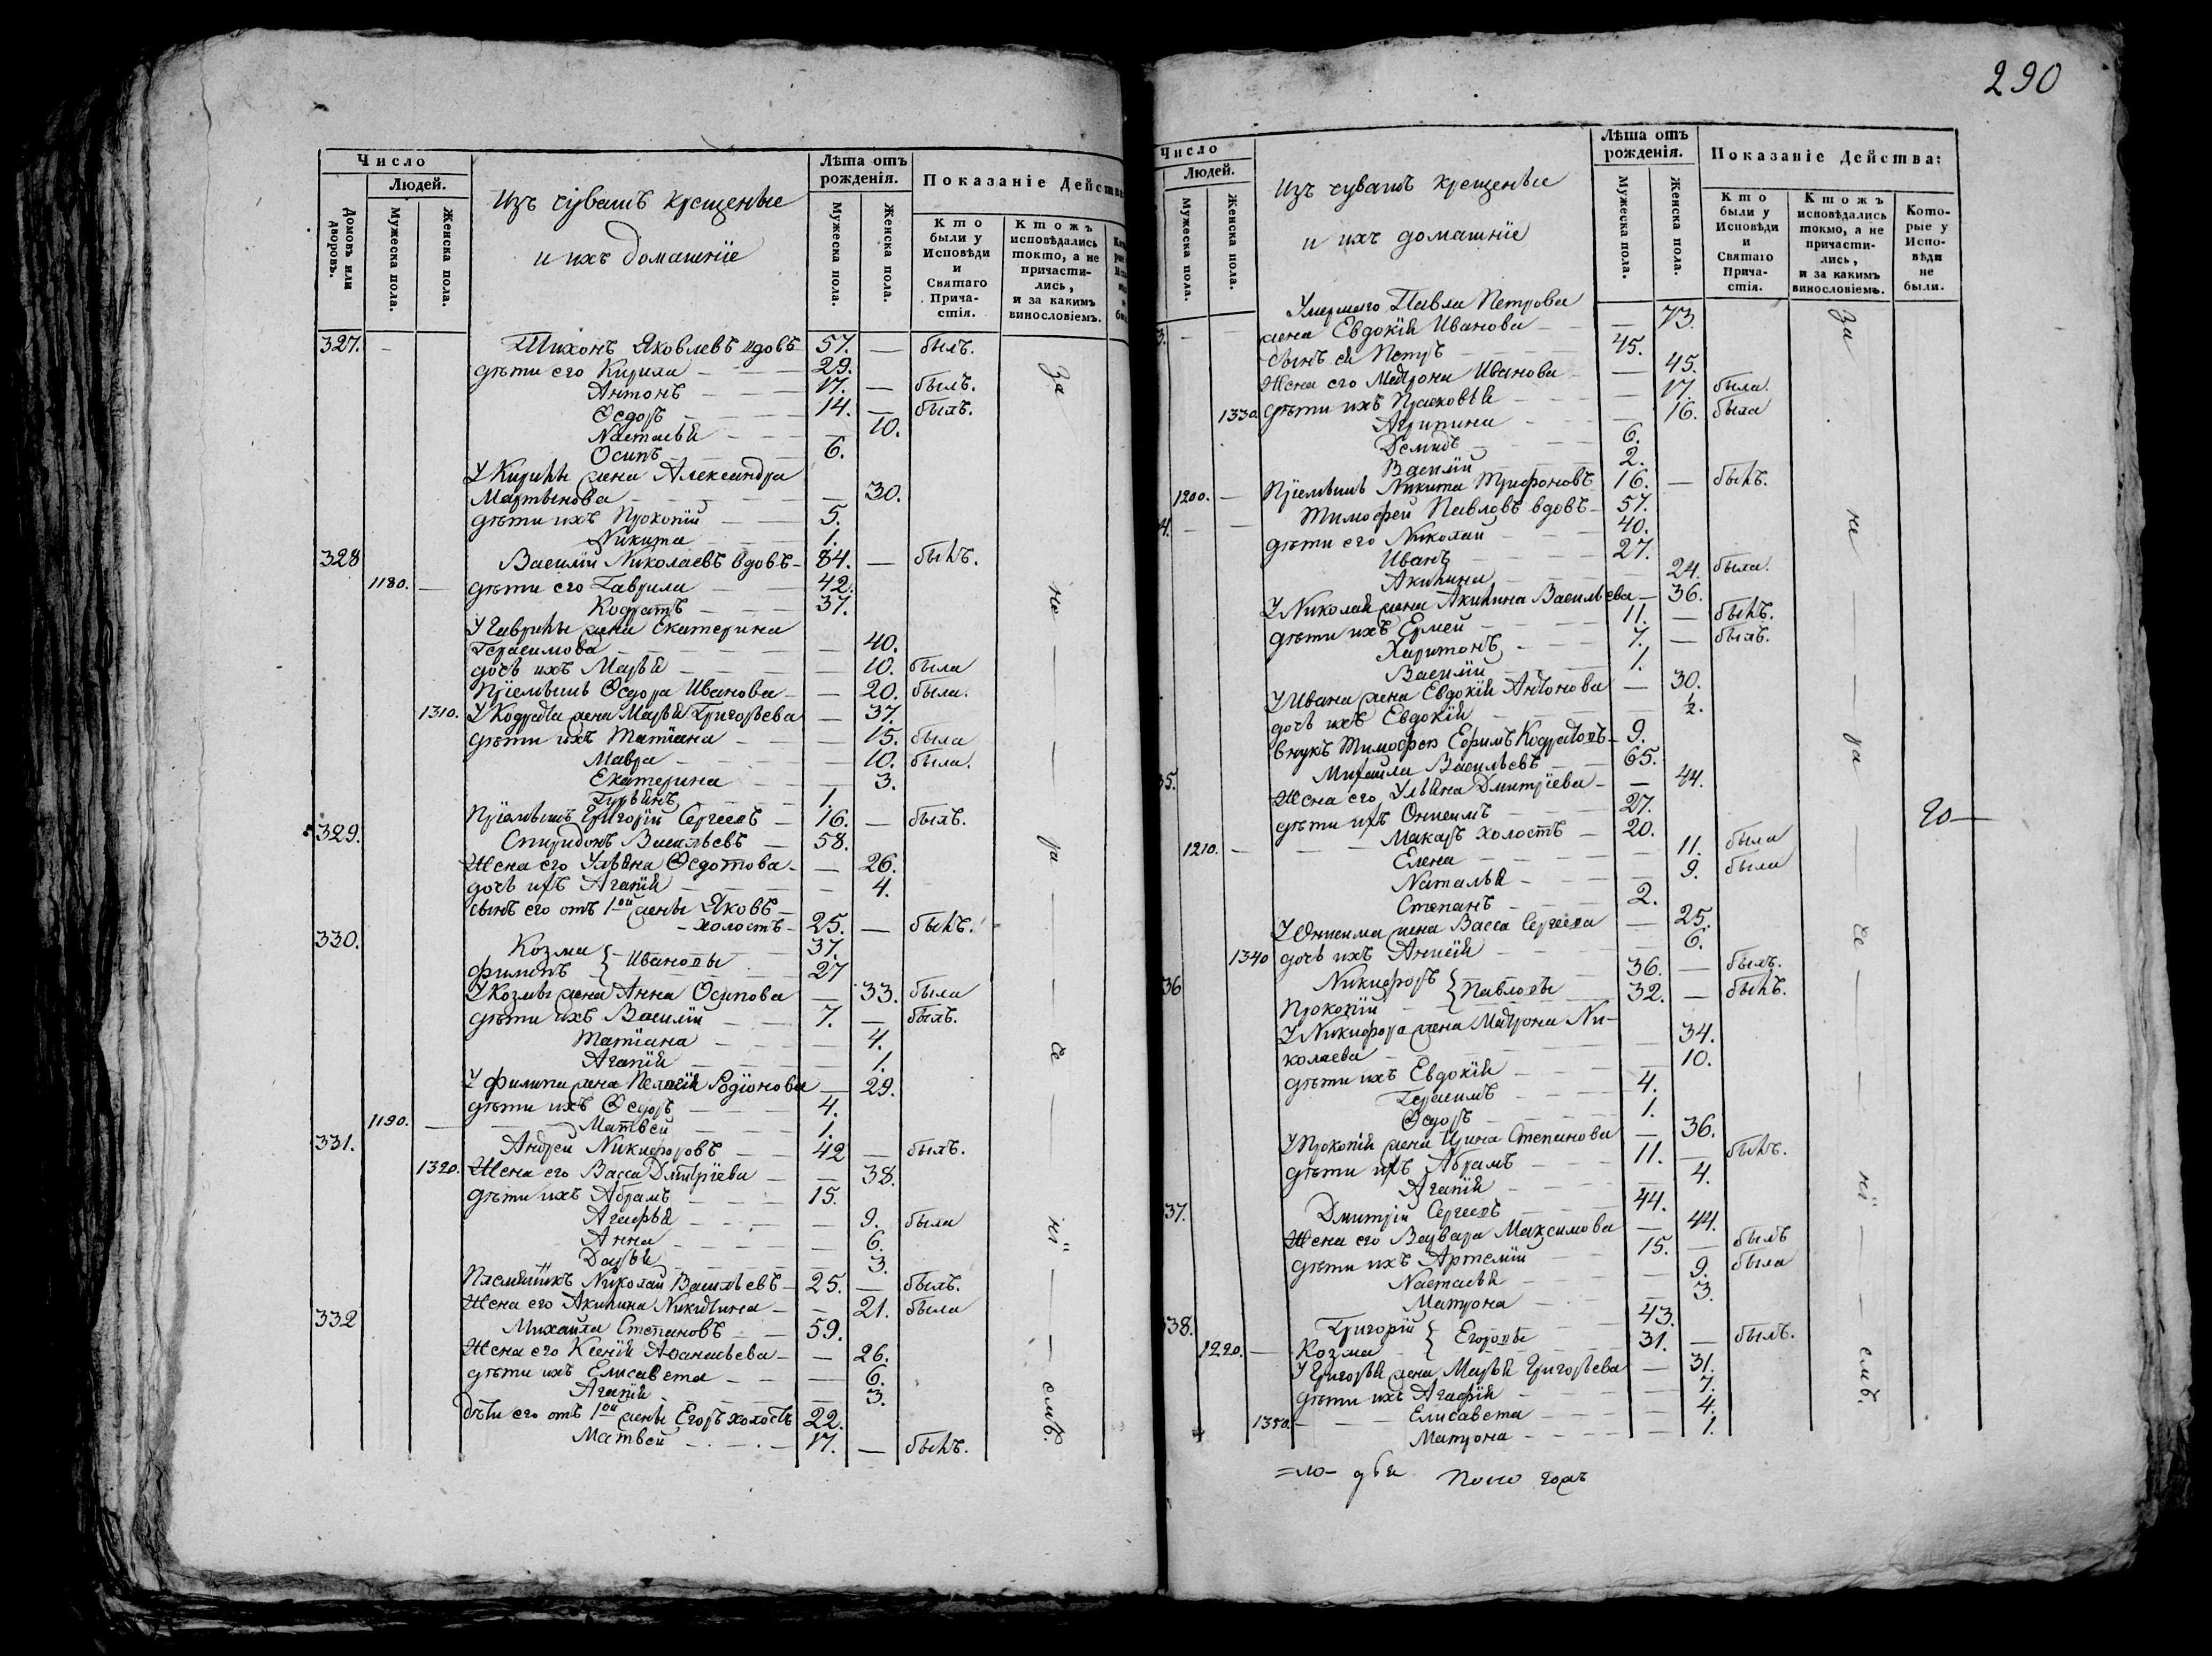 290
Число
Людей.
Домовъ или дворовъ.
Мужеска пола.
Женска пола.
Изъ чувашъ крещеные
и ихъ домашніе
Лѣта отъ рожденія.
Мужеска пола.
Женска пола.
Показаніе Действа
Кто были у Исповѣди и Святаго Прича-стія.
Ктожъ исповѣдались токмо, а не причасти-лись, и за какимъ винословіемъ.
327. — Тихонъ Яковлевъ вдовъ 57. — былъ.
дѣти его Кирила — 29.
Антонъ — 17. — былъ.
Ѳедоръ — 14. — былъ.
Настасья — — 10.
Осипъ — 6.
У Кирилы жена Александра
Мартынова — — 30.
дѣти ихъ Прокопій — 5.
Никита — 1.
328 Василій Николаевъ вдовъ — 84. — былъ.
1180. — дѣти его Гаврила — 42.
Кодратъ — 37.
У Гаврилы жена Екатерина
Герасимова — — 40.
дочь ихъ Марья — — 10. была
Пріемышъ Ѳедора Иванова — — 20. была.
1310. У Кодрата жена Марья Григорьева — 37.
дѣти ихъ Татіана — — 15. была
Мавра — — 10. была.
Екатерина — — 3.
Гурьянъ — 1.
Пріемышъ Григорій Сергеевъ — 16. — былъ.
329. Спиридонъ Васильевъ — 58.
Жена его Ульяна Ѳедотова — — 26.
дочь ихъ Агапія — — 4.
сынъ его отъ 1ой жены Яковъ —
— холостъ — 25. — былъ.
330. Козма } Ивановы — 37.
Филипъ — 27
У Козмы жена Анна Осипова — 33. была
дѣти ихъ Василій — 7. — былъ.
Татіана — — 4.
Агапія — — 1.
У Филипа жена Пелагія Родіонова — 29.
дѣти ихъ Ѳедоръ — 4.
1190. — Матвей — 1.
331. Андрей Никифоровъ — 42 — былъ.
1320. Жена его Васса Дмитріева — — 38.
дѣти ихъ Абрамъ — 15.
Агафья — — 9. была
Анна — — 6.
Дарья — — 3.
Племянникъ Николай Васильевъ — 25. — былъ.
Жена его Акилина Никитина — — 21. была
332 Михайла Степановъ — 59.
Жена его Ксенія Аѳанасьева — — 26.
дѣти ихъ Елисавета — — 6.
Агапія — — 3.
дѣти его отъ 1ой жены Егоръ холостъ 22.
Матвей — 17. — былъ.
за — не — ра — че — ні — емъ.
Число
Людей.
Мужеска пола.
Женска пола.
Изъ чувашъ крещеные
и ихъ домашніе
Лѣта отъ рожденія.
Мужеска пола.
Женска пола.
Показаніе Действа:
Кто были у Исповѣди и Святаго Прича-стія.
Ктожъ исповѣдались токмо, а не причасти-лись, и за какимъ винословіемъ.
Кото-рые у Испо-вѣди не были.
3. — Умершаго Павла Петрова
жена Евдокія Иванова — — 73.
сынъ ея Петръ — 45.
Жена его Матрона Иванова — — 45.
1330. дѣти ихъ Прасковья — — 17. была.
Агрипина — — 16. была
Демидъ — 6.
Василій — 2.
1200. — Пріемышъ Никита Трифоновъ 16. — былъ.
4. — Тимофей Павловъ вдовъ — 57.
дѣти его Николай — 40.
Иванъ — 27.
Акилина — — 24. была.
У Николая жена Акилина Васильева — 36.
дѣти ихъ Ермей — 11. — былъ.
Харитонъ — 7. — былъ.
Василій — 1.
У Ивана жена Евдокія Антонова — 30.
дочь ихъ Евдокія — — ½.
внукъ Тимофея Ефимъ Кодратовъ — 9.
35. Михайла Васильевъ — 65.
Жена его Ульяна Дмитріева — — 44.
дѣти ихъ Онисимъ — 27.
1210. — Макаръ холостъ — 20.
Елена — — 11. была
Наталья — — 9. была
Степанъ — 2.
У Онисима жена Васса Сергеева — 25.
1340 дочь ихъ Анисія — — 6.
36 Никифоръ } Павловы 36. — былъ.
Прокопій — 32. — былъ.
У Никифора жена Матрона Ни-
колаева — — 34.
дѣти ихъ Евдокія — — 10.
Герасимъ — 4.
Ѳедоръ — 1.
У Прокопія жена Ирина Степанова — 36.
дѣти ихъ Абрамъ — 11. — былъ.
Агапія — — 4.
37. Дмитрій Сергеевъ — 44.
Жена его Варвара Максимова — 44.
дѣти ихъ Артемій — 15. — былъ
Настасья — — 9. была
Матрона — — 3.
38. Григорій } Егоровы 43.
1220. — Козма — 31. — былъ.
У Григорья жена Марья Григорьева — 31.
дѣти ихъ Агафія — — 7.
1350. — Елисавета — — 4.
Матрона — — 1.
за — не — ра — че — ні — емъ.
20 —